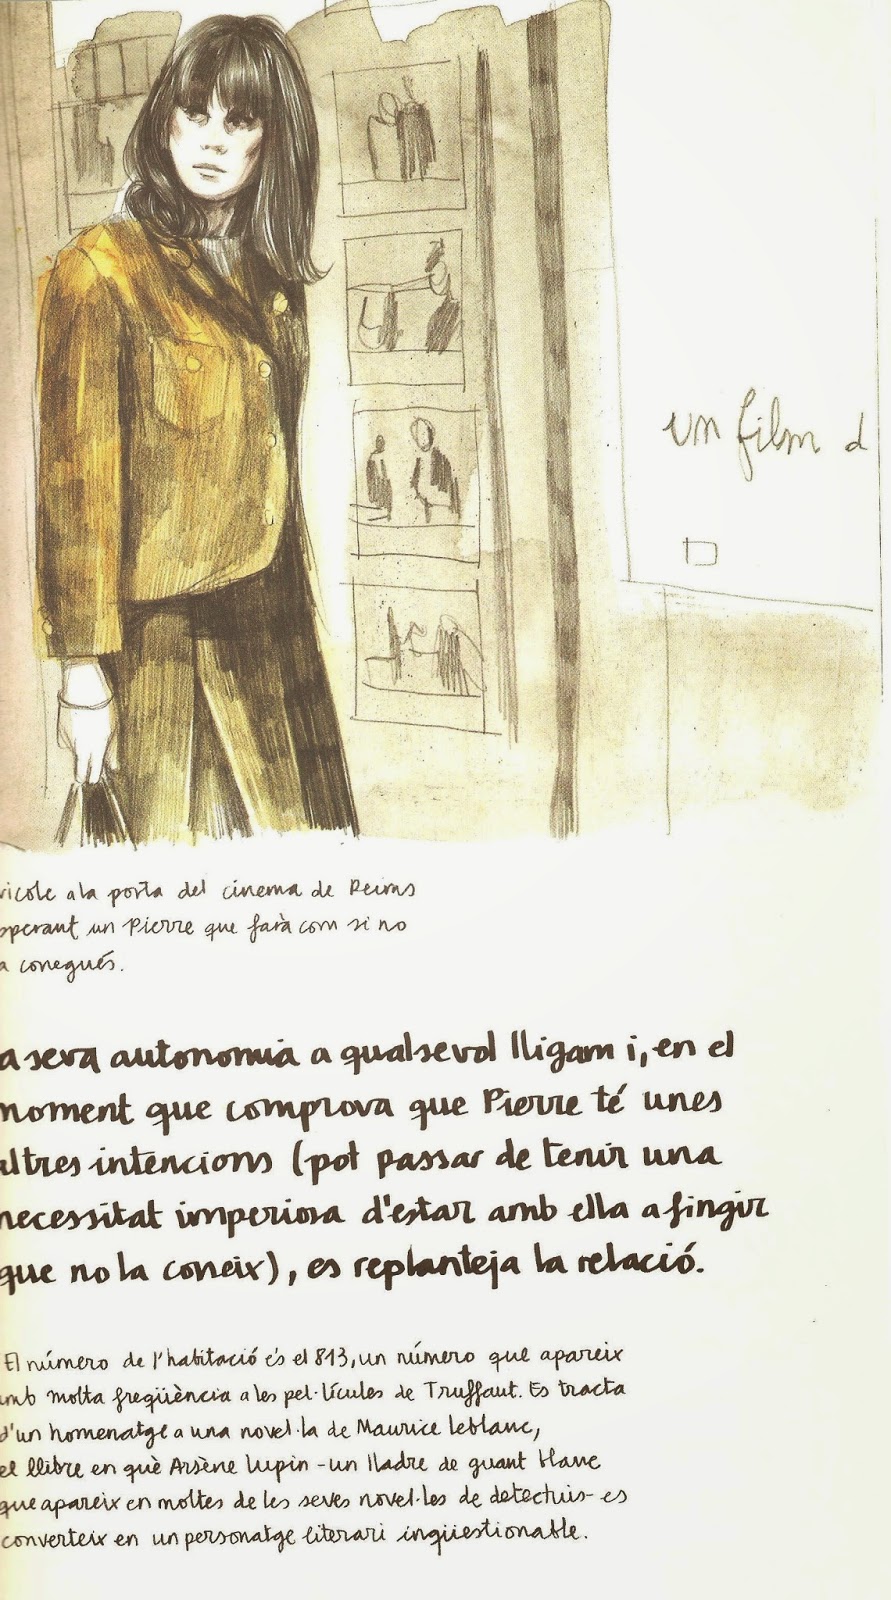 un film d
nicole a la porta del cinema de Reims
sperant un Pierre que farà com si no
a conegués.
a seva autonomia a qualsevol lligam i, en el
moment que comprova que Pierre té unes
altres intencions (pot passar de tenir una
necessitat imperiosa d'estar amb ella a fingir
que no la coneix), es replanteja la relació.
El número de l'habitació és el 813, un número que apareix
amb molta freqüència a les pel·lícules de Truffaut. Es tracta
d'un homenatge a una novel·la de Maurice Leblanc,
el llibre en què Arsène Lupin -un lladre de guant blanc
que apareix en moltes de les seves novel·les de detectius- es
converteix en un personatge literari inqüestionable.